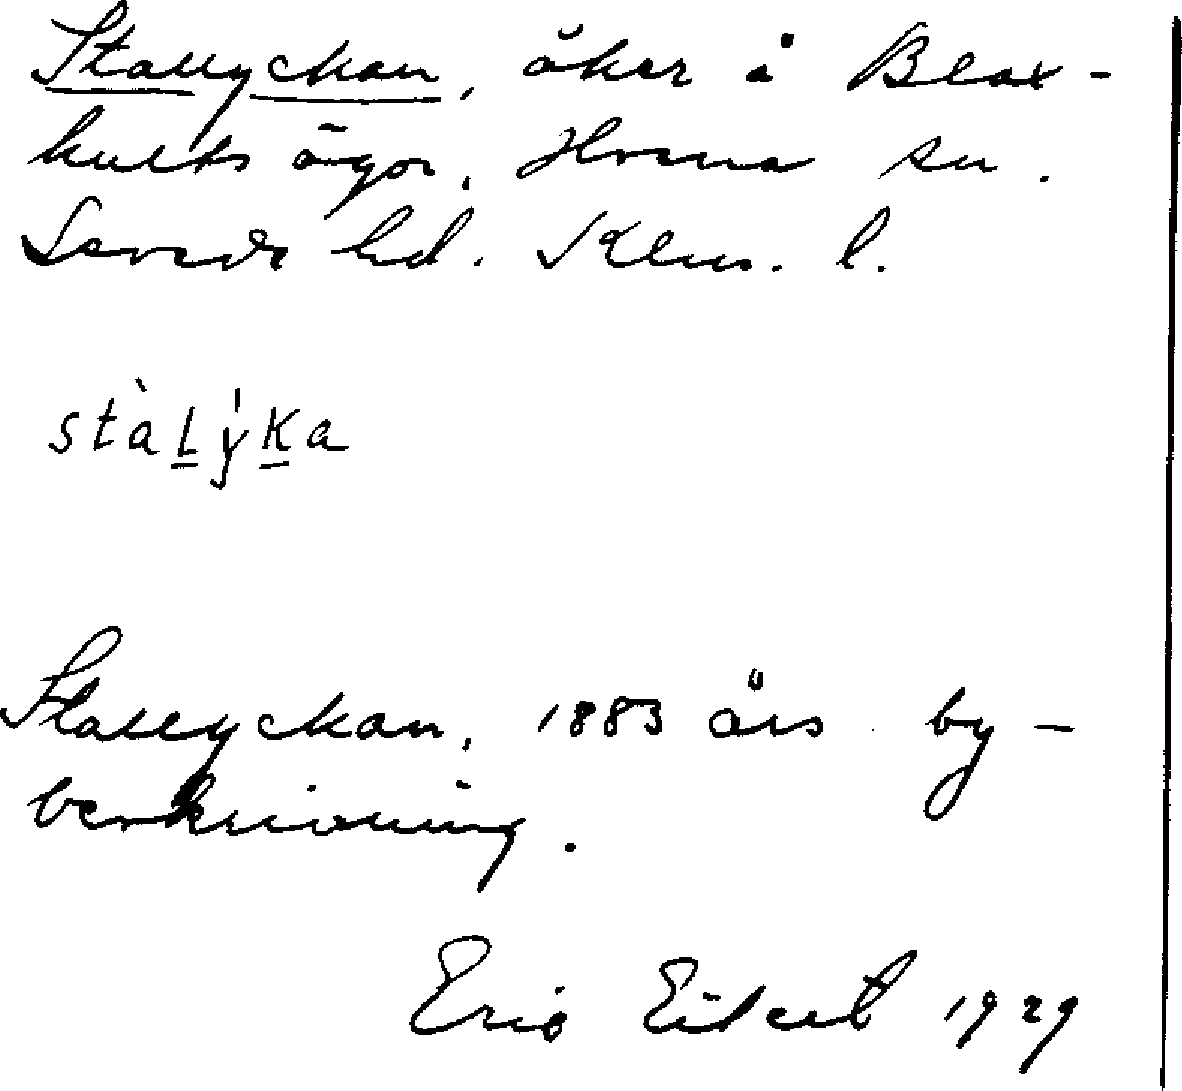 Stallyckan, åker å Blax-
hults ägor, Hvena sn.
Sevede hd. Klms. l.
stàḺýḴa
Stallyckan, 1883 års by-
beskrivning.
Eric 1929